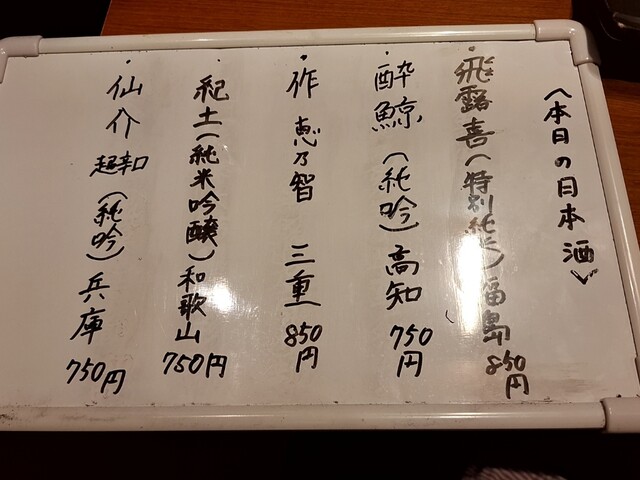 〈本日の日本酒〉
・飛露喜(特別純米)福島 850円
・酔鯨(純吟)高知 750円
・作 恵乃智 三重 850円
・紀土(純米吟醸)和歌山 750円
・仙介 超辛口(純吟)兵庫 750円